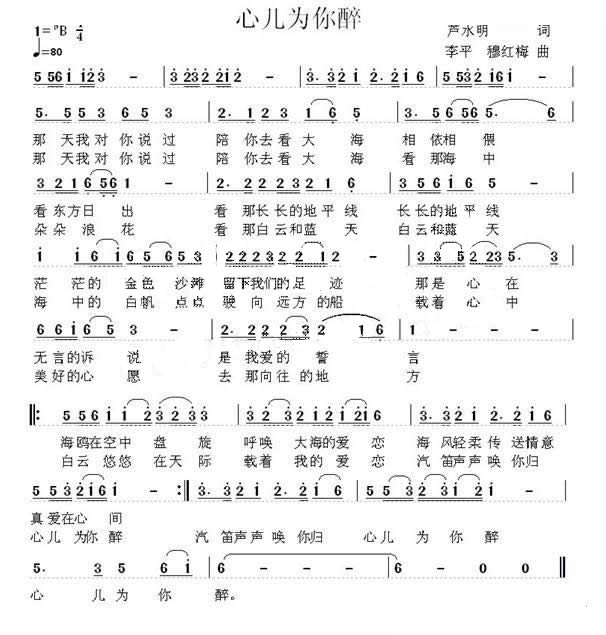 心儿为你醉
1=♭B 4/4 芦水明 词
♩=80 李平 穆红梅 曲
5 5 6 i i 2 3 - | 3 2 3 2 2 i 2 - | 3. 3 2 i 2. 2 i 6 | 5 5 3 2 i 6 i - |
5. 5 5 3 6 5 3 | 2. 1 2 3 1 6 5 | 3. 5 6 5 6 5. (5 6)
那 天我 对 你 说 过 陪 你去 看 大 海 相 依相 偎
那 天我 对 你 说 过 陪 你去 看 大 海 看 那海 中
3 2 1 6 5 6 1 - | 2. 2 3 2 3 2 1 6 | 3 5 i 6 5 -
看 东方 日 出 看 那长 长的 地 平 线 长 长的 地 平 线
朵 朵 浪 花 看 那白 云和 蓝 天 白 云和 蓝 天
i i 6 i 6 5 6 5 5 3 | 2 2 2 3 2 3 2 2 - | 3 3 5 2 2 3 5
茫 茫的 金色 沙滩 留下 我们的 足 迹 那是 心 在
海 中的 白帆 点点 驶 向 远方 的船 载着 心 中
6 6 i 6 5 3 - | 2. 2 2 3 2 2 1 6 | 1 - - -
无 言的 诉 说 是 我爱 的 誓 言
美 好的 心 愿 去 那向 往 的地 方
‖: 5 5 6 i i 2 3 2 3 3 | 3 2 i 2 i 2 2 i 6 | 3. 3 2 i 2 2 i 6
海 鸥在 空中 盘 旋 呼唤 大海的 爱 恋 海 风轻 柔 传 送情意
白 云 悠悠 在天 际 载着 我的 爱 恋 汽 笛声 声 唤 你归
5 5 3 2 i 6 i - :‖ 3. 3 2 i 2. 2 i 6 | 5 5 3 2 2 3 2 i
真 爱在 心 间
心 儿 为你 醉 汽 笛声 声 唤 你归 心 儿 为 你 醉
5. 3 5 6 i | 6 - - - | 6 - 0 0 ‖
心 儿 为 你 醉。